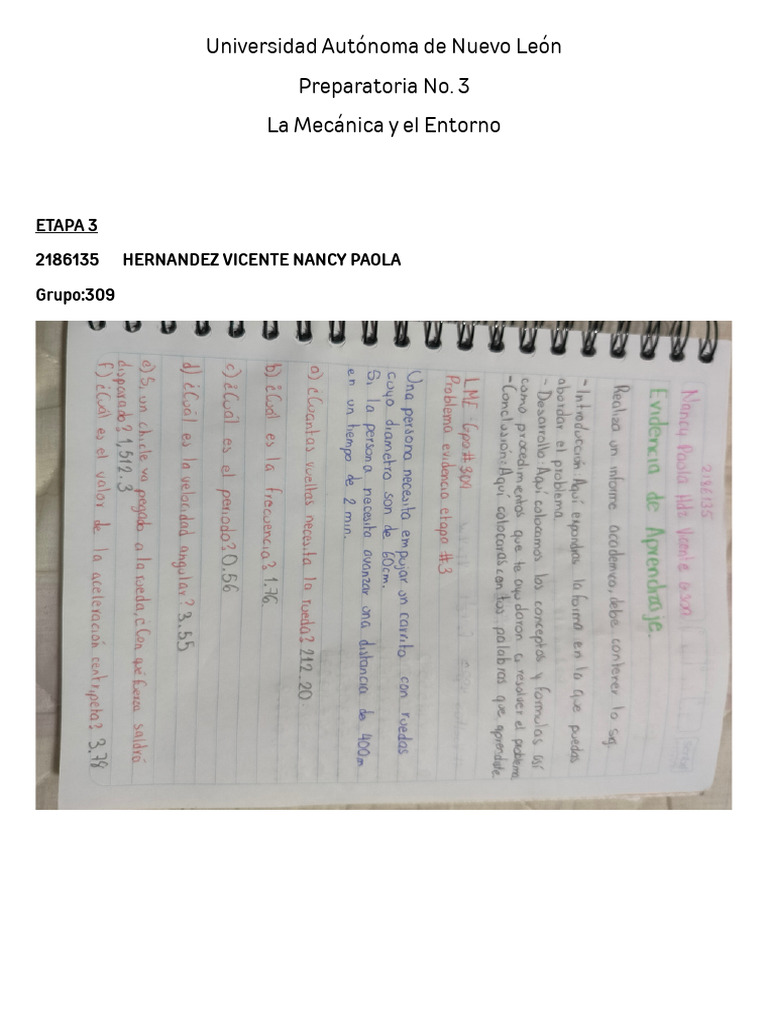 Universidad Autónoma de Nuevo León
Preparatoria No. 3
La Mecánica y el Entorno
ETAPA 3
2186135 HERNANDEZ VICENTE NANCY PAOLA
Grupo:309
2186135
Nancy Paola Hdz Vicente
Evidencia de Aprendizaje.
Realiza un informe academico, debe contener lo sig.
- Introducción: Aquí expandras la forma en la que puedas
abordar el problema
- Desarrollo: Aquí colocamos los conceptos y formulas así
como procedimientos que te ayudaron a resolver el problema
- Conclusión: Aquí colocaras con tus palabras que aprendiste
LME - Gpo #309
Problema evidencia etapa #3
Una persona necesita empujar un carrito con ruedas
cuyo diametro son de 60cm.
Si la persona necesita avanzar una distancia de 400m
en un tiempo de 2 min.
a) ¿Cuantas vueltas necesita la rueda? 212.20
b) ¿Cual es la frecuencia? 1.76
c) ¿Cuál es el periodo? 0.56
d) ¿Cuál es la velocidad angular? 3.55
e) Si un chicle va pegado a la rueda, ¿Con qué fuerza saldrá
disparado? 1,512.3
f) ¿Cuál es el valor de la aceleración centripeta? 3.78